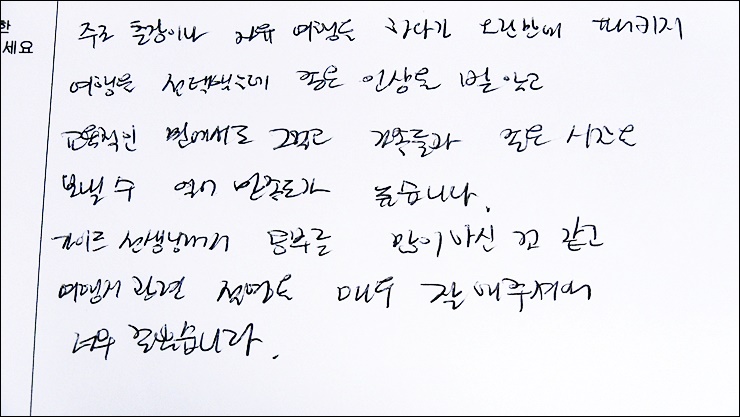 한
세요
주로 출장이나 자유 여행을 하다가 오랜만에 패키지
여행을 선택했는데 좋은 인상을 받았고
교육적인 면에서도 그렇고 가족들과 좋은 시간도
보낼 수 있어 만족도가 높습니다.
가이드 선생님께서 공부를 많이 하신 것 같고
여행지 관련 설명도 매우 잘 해주셔서
너무 좋았습니다.